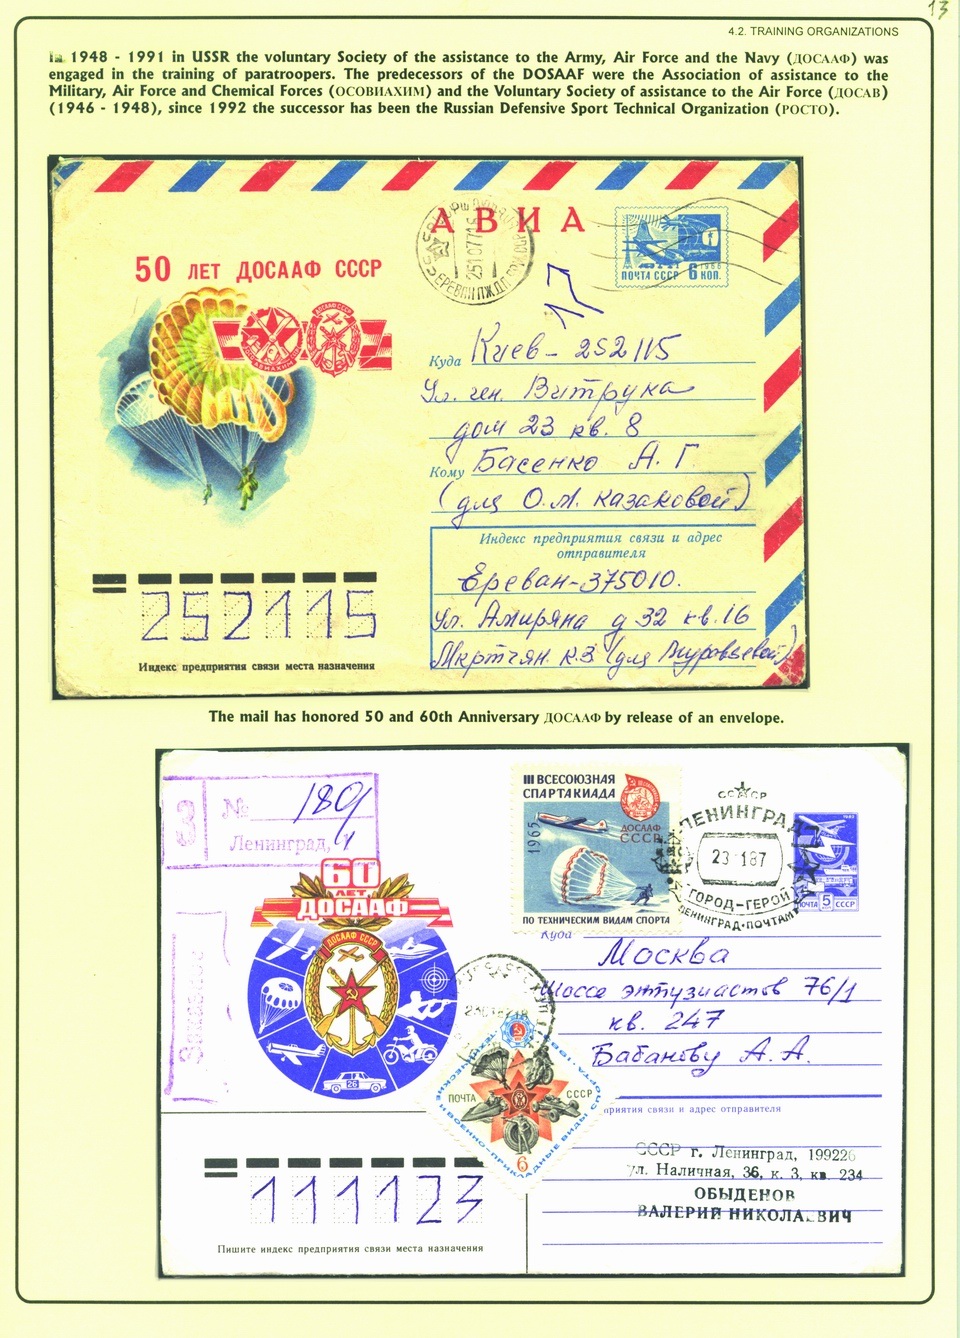 13
4.2. TRAINING ORGANIZATIONS
In 1948 - 1991 in USSR the voluntary Society of the assistance to the Army, Air Force and the Navy (ДОСААФ) was
engaged in the training of paratroopers. The predecessors of the DOSAAF were the Association of assistance to the
Military, Air Force and Chemical Forces (ОСОВИАХИМ) and the Voluntary Society of assistance to the Air Force (ДОСАВ)
(1946 - 1948), since 1992 the successor has been the Russian Defensive Sport Technical Organization (РОСТО).
АВИА
50 ЛЕТ ДОСААФ СССР
251077
ЕРЕВАН
ПОЧТА СССР 6 КОП.
1966
17
Куда Киев - 252115
Ул. ген. Витрука
дом 23 кв. 8
Кому Басенко А. Г.
(для О.М. Казаковой)
Индекс предприятия связи и адрес
отправителя
Ереван-375010.
Ул. Амиряна д 32 кв. 16
Мкртчян К.З (для Журавьевой)
252115
Индекс предприятия связи места назначения
The mail has honored 50 and 60th Anniversary ДОСААФ by release of an envelope.
З
№ 189
Ленинград,
Заказное
III ВСЕСОЮЗНАЯ
СПАРТАКИАДА
ДОСААФ
СССР
1965
ПО ТЕХНИЧЕСКИМ ВИДАМ СПОРТА
СССР
ЛЕНИНГРАД
23 1 87
ГОРОД-ГЕРОЙ
ЛЕНИНГРАД-ПОЧТАМТ
ПОЧТА 5 СССР
60
ЛЕТ
ДОСААФ
ДОСААФ СССР
26
Куда
Москва
Шоссе энтузиастов 76/1
кв. 247
Бабаневу А. А.
ПОЧТА СССР
6
приятия связи и адрес отправителя
СССР г. Ленинград, 199226
ул. Наличная, 36, к. 3, кв 234
ОБЫДЕНОВ
ВАЛЕРИЙ НИКОЛАЕВИЧ
111123
Пишите индекс предприятия связи места назначения